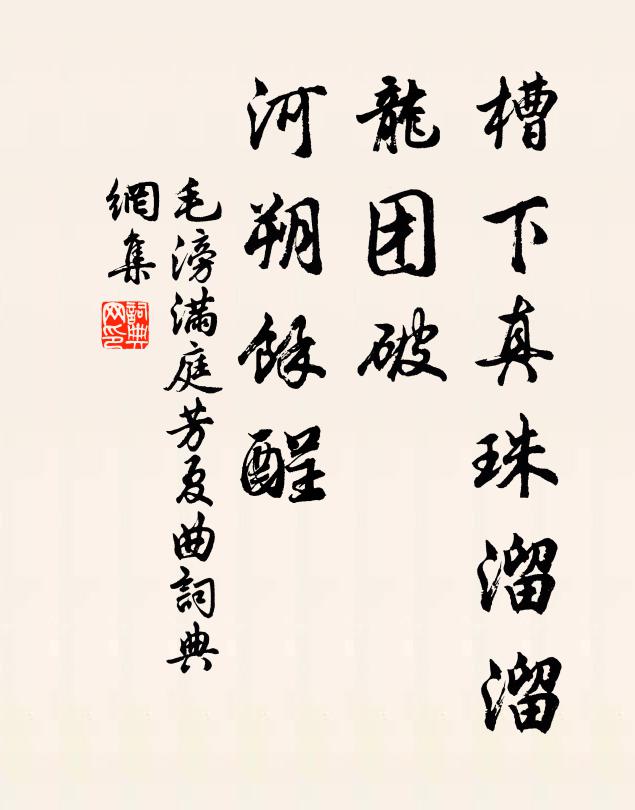 槽下真珠溜溜
龍团破
河朔餘酲
毛滂满庭芳夏曲詞典
網集
詞典網印